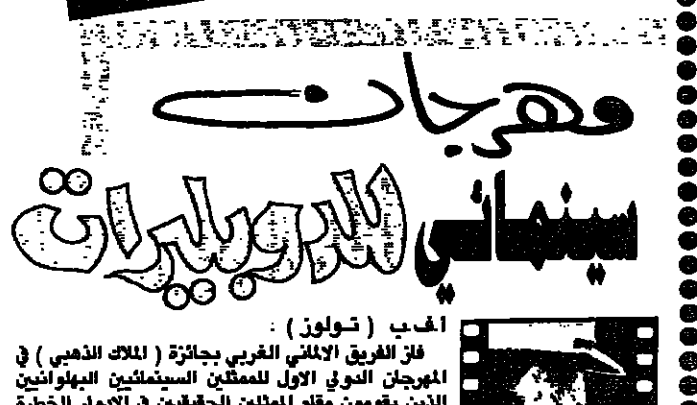 مهرجان
سينمائي للدوبليرات
أ.ف.ب ( تولوز ) :
فاز الفريق الالماني الغربي بجائزة ( الملاك الذهبي ) في
المهرجان الدولي الاول للممثلين السينمائيين البهلوانيين
الذين يقومون مقام الممثلين الحقيقيين في الادوار الخطرة